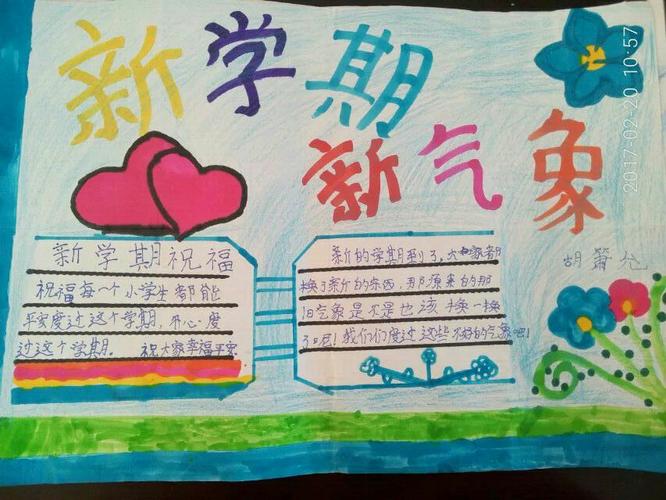 新学期
新气象
2017-02-20 10:57
新学期祝福
祝福每一个小学生都能
平安度过这个学期，开心度
过这个学期。祝大家幸福平安
新的学期到了，大家都
换了新的东西，那原来的那
旧气象是不是也该换一换
了吧！我们们度过这些不好的气象吧！
胡箫允